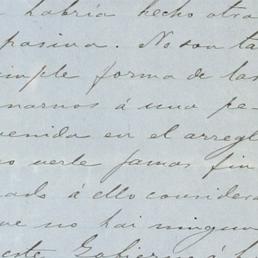 habría hecho otra
pasiva. No son ta
imple forma de las
narnos á una pe
venida en el arregl
o verle jamas fin
ado á ello considera
ue no hai ningun
este Gobierno á h